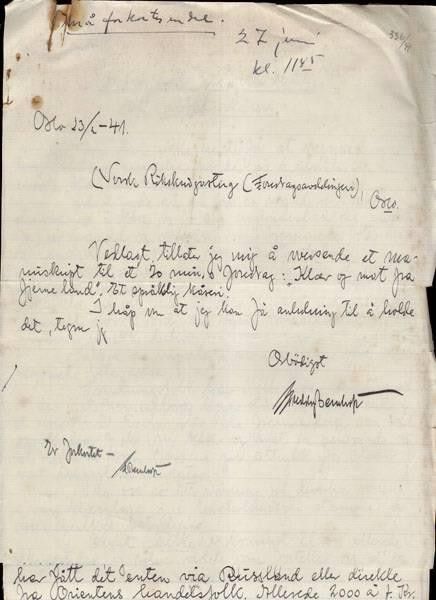 må forkortes en del.
27 juni
kl. 11 45
Oslo 23/ -41.
Norsk Rikskringkasting (Foredragsavdelingen),
Oslo.
Vedlagt tillater jeg mig å oversende et ma-
nuskript til et 20 min.s foredrag: "Klær og mat fra
fjerne land", et språklig kåseri.
I håp om at jeg kan få anledning til å holde
det, tegner jeg
Ærbödigst
Er forkortet -
har fått det enten via Russland eller direkte
fra Orientens handelsfolk. Allerede 2000 å f. Kr.